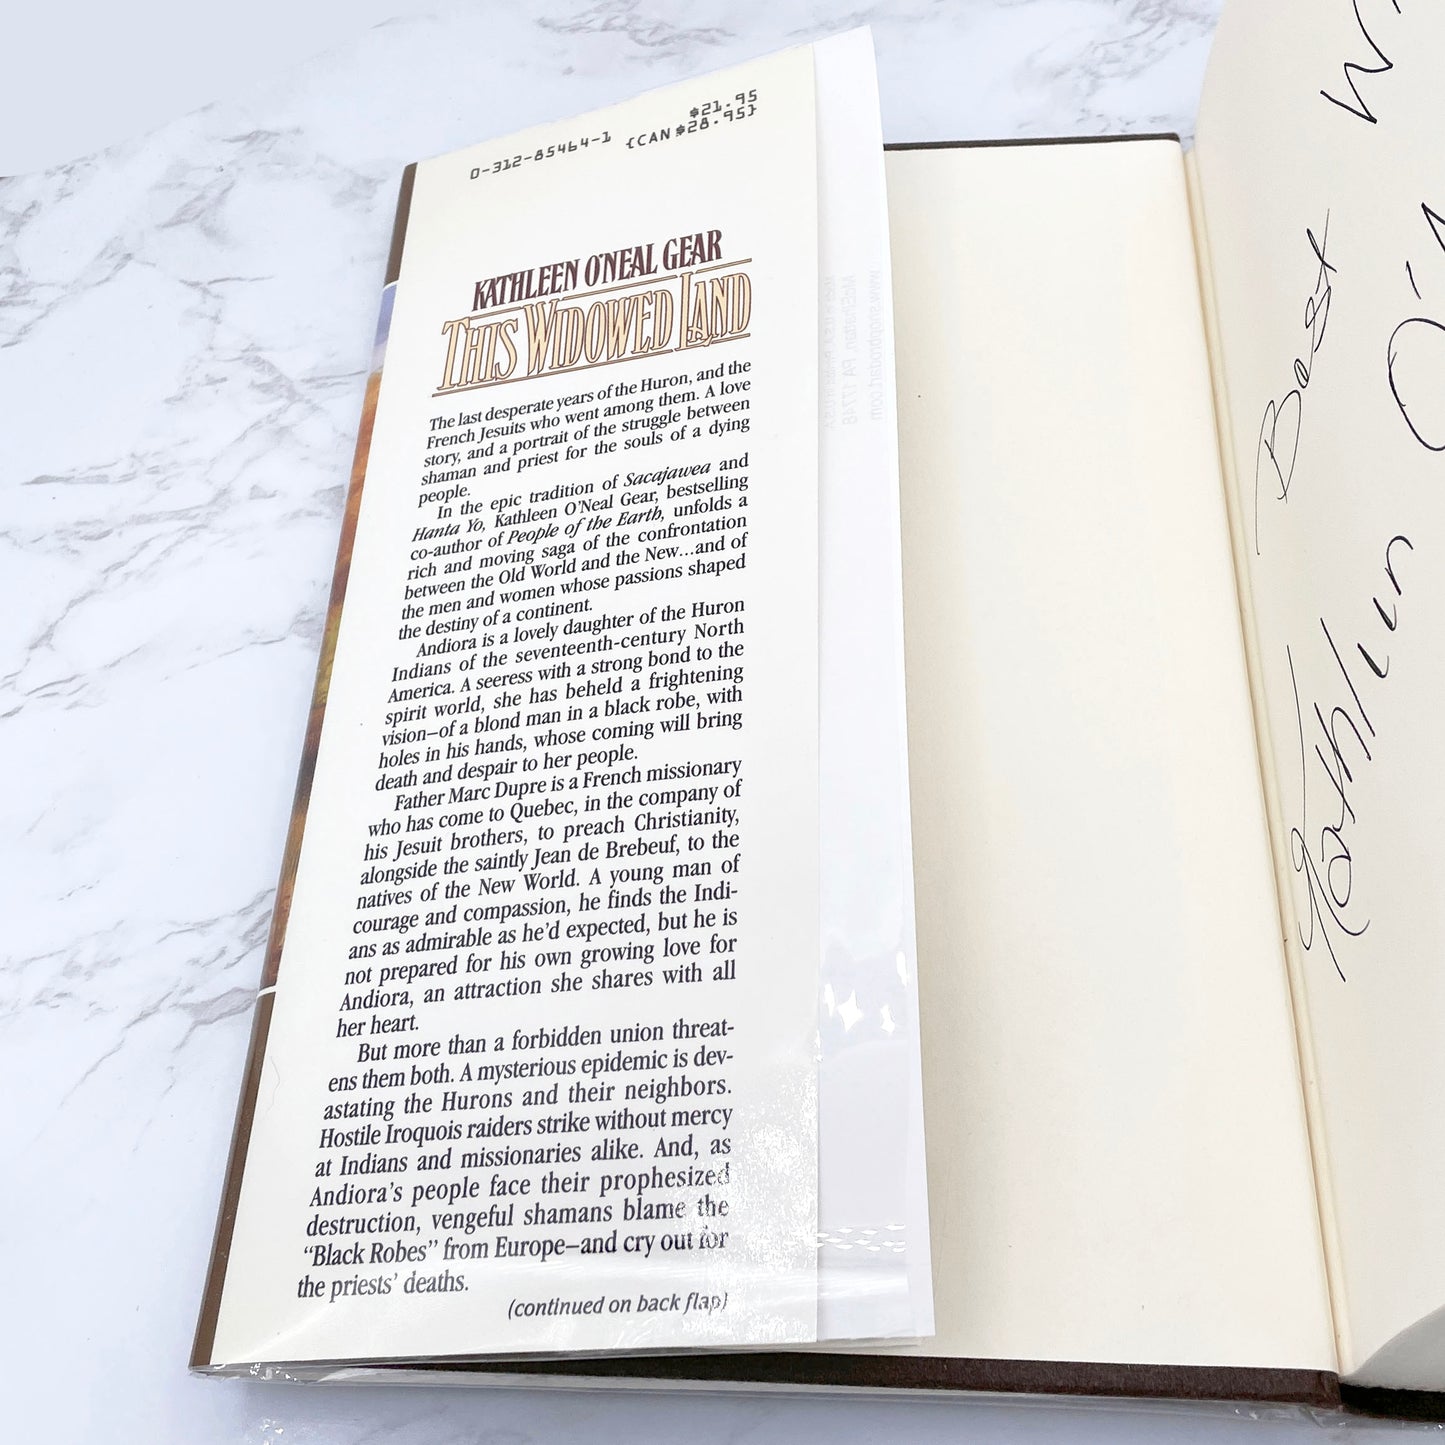 0-312-85464-1
$21.95
{CAN $28.95}
KATHLEEN O'NEAL GEAR
THIS WIDOWED LAND
The last desperate years of the Huron, and the
French Jesuits who went among them. A love
story, and a portrait of the struggle between
shaman and priest for the souls of a dying
people.
In the epic tradition of Sacajawea and
Hanta Yo, Kathleen O'Neal Gear, bestselling
co-author of People of the Earth, unfolds a
rich and moving saga of the confrontation
between the Old World and the New...and of
the men and women whose passions shaped
the destiny of a continent.
Andiora is a lovely daughter of the Huron
Indians of the seventeenth-century North
America. A seeress with a strong bond to the
spirit world, she has beheld a frightening
vision–of a blond man in a black robe, with
holes in his hands, whose coming will bring
death and despair to her people.
Father Marc Dupre is a French missionary
who has come to Quebec, in the company of
his Jesuit brothers, to preach Christianity,
alongside the saintly Jean de Brebeuf, to the
natives of the New World. A young man of
courage and compassion, he finds the Indi-
ans as admirable as he'd expected, but he is
not prepared for his own growing love for
Andiora, an attraction she shares with all
her heart.
But more than a forbidden union threat-
ens them both. A mysterious epidemic is dev-
astating the Hurons and their neighbors.
Hostile Iroquois raiders strike without mercy
at Indians and missionaries alike. And, as
Andiora's people face their prophesized
destruction, vengeful shamans blame the
“Black Robes” from Europe–and cry out for
the priests' deaths.
(continued on back flap)
Best
Kathleen